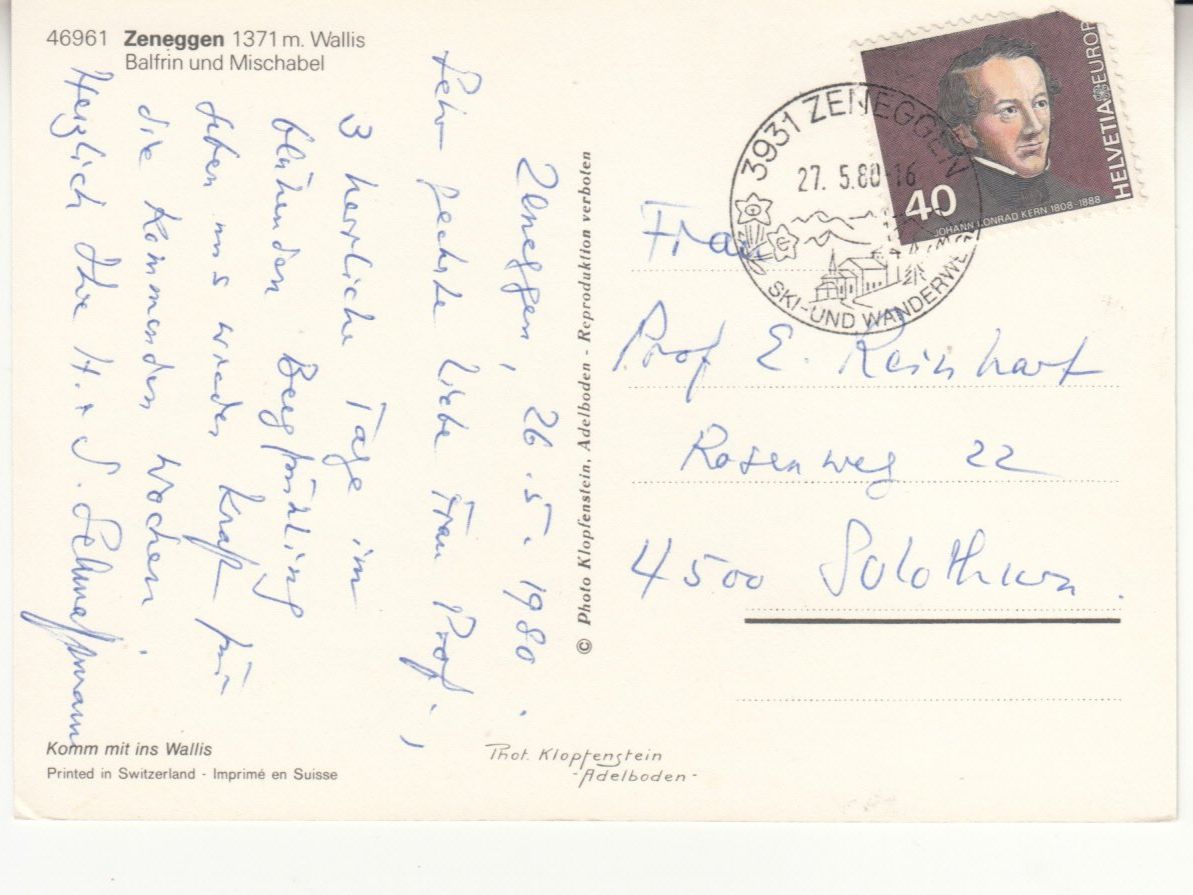 46961 Zeneggen 1371 m. Wallis
Balfrin und Mischabel
Zeneggen, 26.5.1980.
Sehr geehrte liebe Frau Prof.,
3 herrliche Tage im
blühenden Bergfrühling
geben uns wieder Kraft für
die kommenden Wochen.
Herzlich Ihre H. + S.
Komm mit ins Wallis
Printed in Switzerland - Imprimé en Suisse
© Photo Klopfenstein, Adelboden - Reproduktion verboten
Phot. Klopfenstein
-Adelboden-
3931 ZENEGGEN
27.5.80-16
SKI-UND WANDERWE
HELVETIA EUROP
40
JOHANN CONRAD KERN 1808-1888
Frau
Prof E. Reinhart
Rosenweg 22
4500 Solothurn.